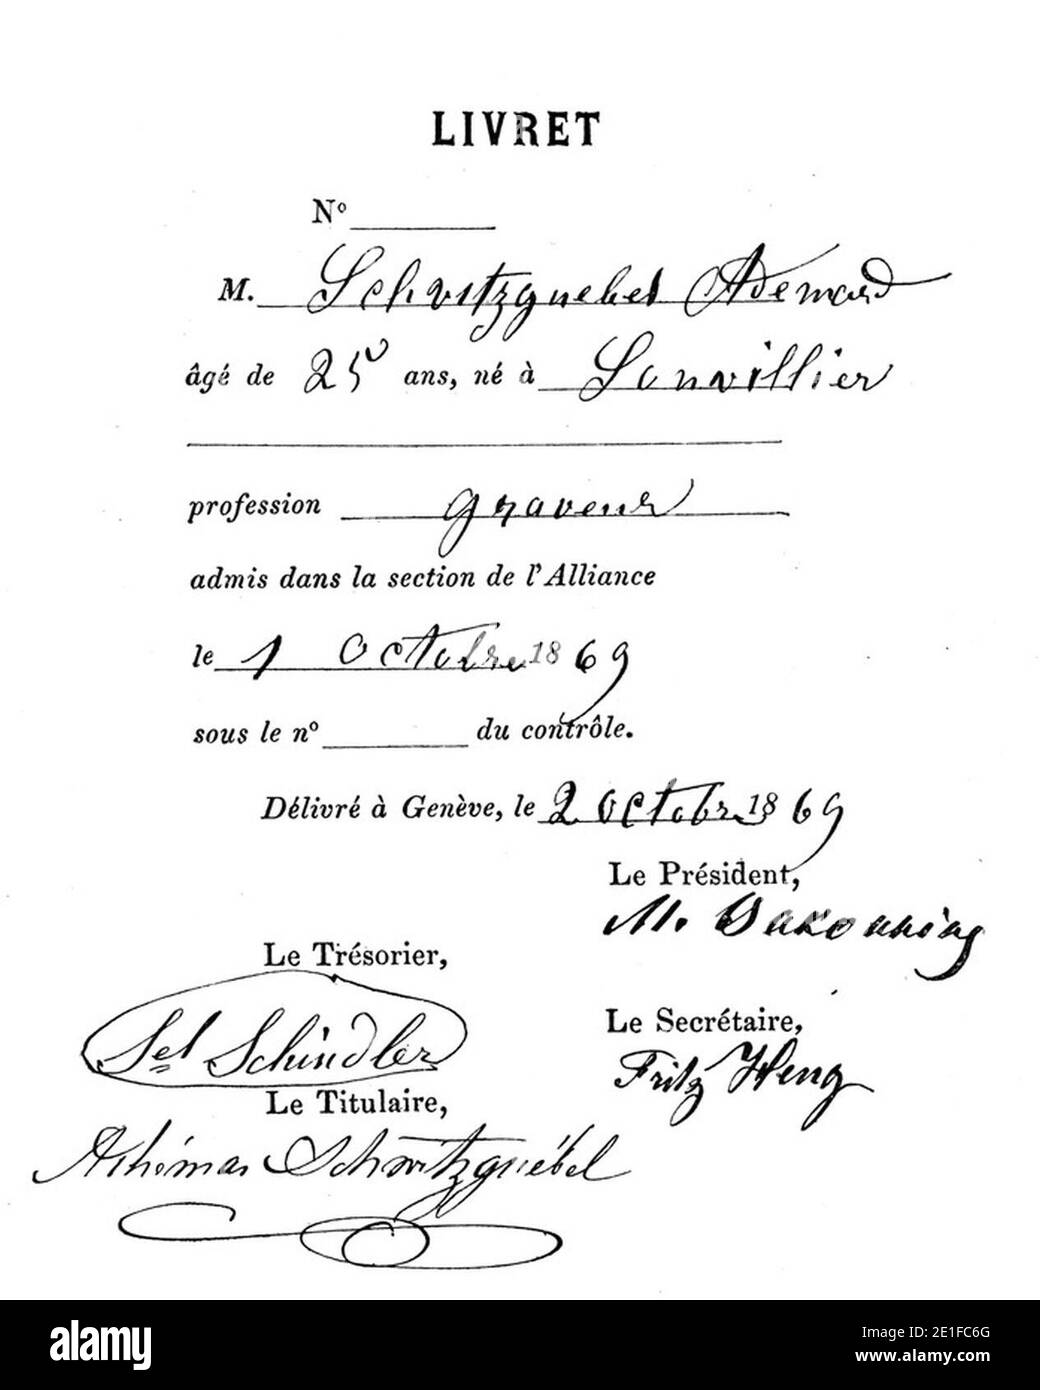 LIVRET
Nº
M. Schvitzguebel Ademard
âgé de 25 ans, né à Sonvillier
profession graveur
admis dans la section de l'Alliance
le 1 Octobre 1869
sous le nº du contrôle.
Délivré à Genève, le 2 octobre 1869
Le Président,
M. Bakounine
Le Trésorier,
Sel Schindler
Le Secrétaire,
Fritz Heng
Le Titulaire,
Adhémar Schwitzguébel
alamy
alamy
Image ID: 2E1FC6G
www.alamy.com